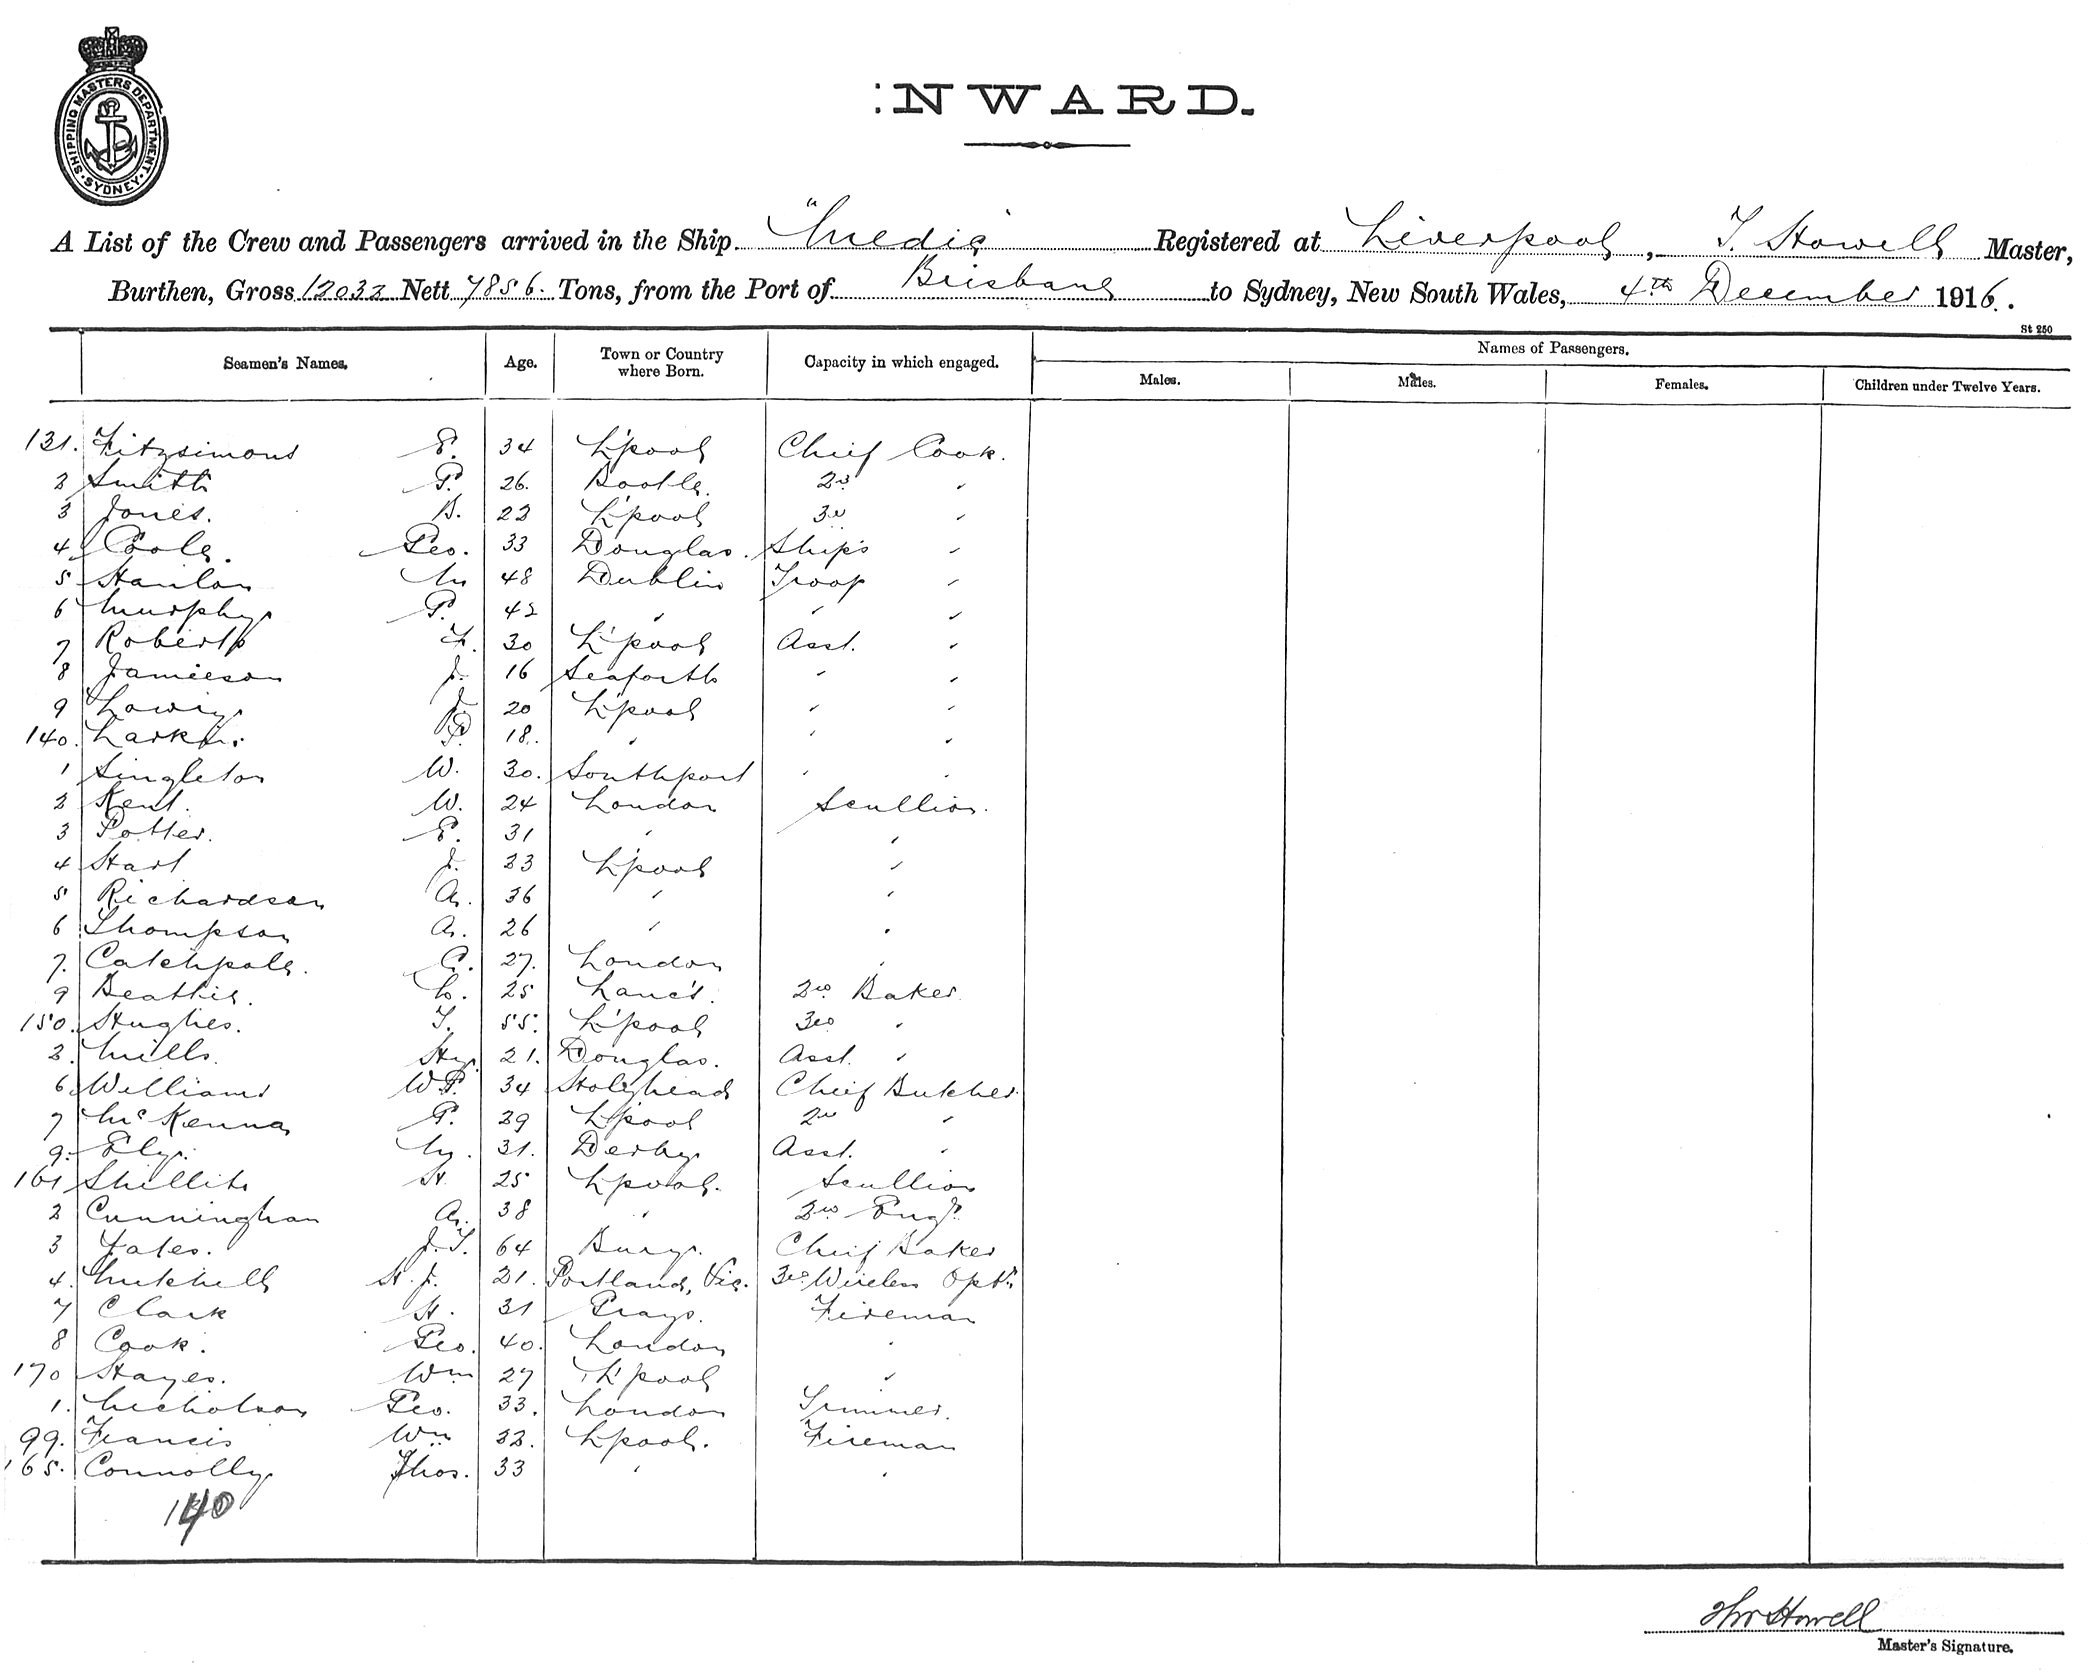 SHIPPING MASTERS DEPARTMENT SYDNEY
INWARD.
A List of the Crew and Passengers arrived in the Ship "Medic" Registered at Liverpool, T. Howell Master,
Burthen, Gross 12032 Nett 7856. Tons, from the Port of Brisbane to Sydney, New South Wales, 4th December 1916.
St 250
Seamen's Names. Age. Town or Country where Born. Capacity in which engaged. Names of Passengers.
Males. Males. Females. Children under Twelve Years.
131. Fitzsimons E. 34 L'pool Chief Cook.
2 Smith P. 26. Bootle. 2nd "
3 Jones. B. 22 L'pool 3rd "
4 Poole. Geo. 33 Douglas. Ships "
5 Hanlon M 48 Dublin Troop "
6 Murphy P. 42 " " "
7 Roberts F. 30 L'pool Asst. "
8 Jamieson J. 16 Seaforth " "
9 Lowry J. 20 L'pool " "
140. Larkin. P. 18. " " "
1 Singleton W. 30. Southport " "
2 Kent. W. 24 London Scullion.
3 Potter. E. 31 " "
4 Hart J. 23 L'pool "
5 Richardson A. 36 " "
6 Thompson A. 26 " "
7. Catchpole. C. 27. London "
9 Beattie. C. 25 Lanc's. 2nd Baker
150. Hughes. T. 55. L'pool 3rd "
2. Mills. Hy. 21. Douglas. Asst. "
6 Williams W.P. 34 Holyhead Chief Butcher
7 McKenna P. 29 L'pool 2nd "
9. Ely. M. 31. Derby Asst. "
161 Shillito H. 25 L'pool. Scullion
2 Cunningham A. 38 " 2nd Engr.
3 Yates. J.T. 64 Bury. Chief Baker
4. Mitchell H.J. 21. Portland, Vic. 3rd Wireless Optr.
7 Clark H. 31 Grays. Fireman
8 Cook. Geo. 40. London "
170 Hayes. Wm 27 L'pool "
1. Nicholson Geo. 33. London Trimmer.
99. Francis Wm 32. L'pool. Fireman
165. Connolly Thos. 33 " "
140
Thos Howell
Master's Signature.